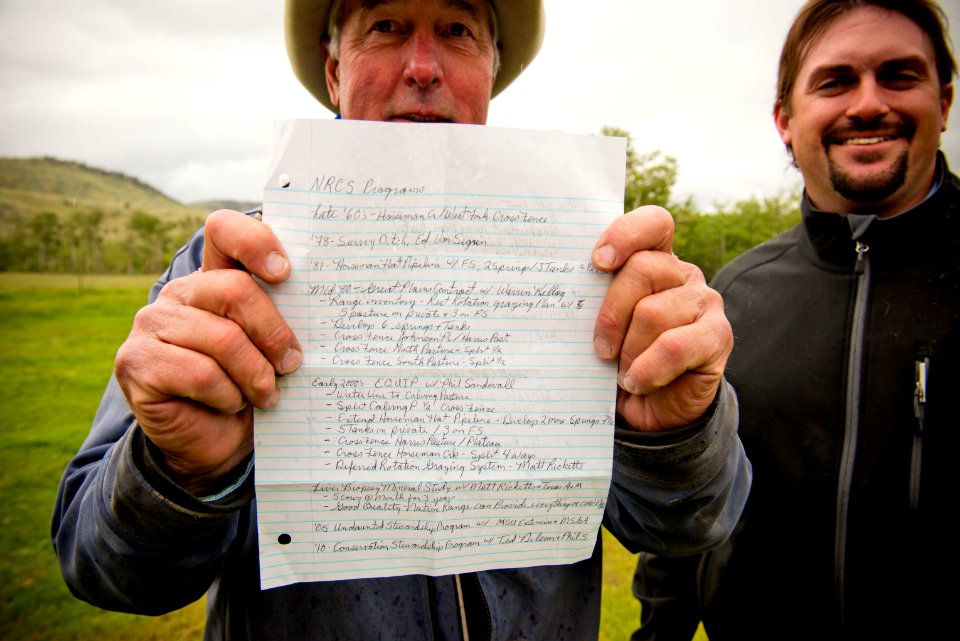 NRCS Programs
Late '60's - Horseman Cr/West Fork Cross fence
'78 - Survey Ditch, Ed Von Segrin
'81 - Horseman Flat Pipeline w/ FS, 2 Springs/3 Tanks
Mid '80 - Great Plains Contract w/ Warren Kellog
- Range inventory - Rest Rotation grazing Plan w/ 5
5 pasture on private + 3 on FS
- Develop 6 springs + Tanks
- Cross Fence Johnson Pl/Harris Past
- Cross Fence North Pasture - Split 1/2
- Cross Fence South Pasture - Split 1/2
Early 2000's EQUIP w/ Phil Sandoval
- Water Line to Calving Pasture
- Split Calving P 1/2 Cross Fence
- Extend Horseman Flat Pipeline - Develop 2 more Springs
- 5 Tanks on private / 3 on FS
- Cross Fence Harris Pasture / Plateau
- Cross Fence Horseman Crk - Split 4 ways
- Deferred Rotation Grazing System - Matt Ricketts
Liver Biopsy Mineral Study w/ Matt Ricketts + Texas A+M
- 5 cows @ Month for 3 years
- Good Quality Native Range can Provide everything a cow
'05 Undaunted Stewardship Program w/ MSU Extension + MSGA
'10 - Conservation Stewardship Program w/ Ted Nelson + Phil S.